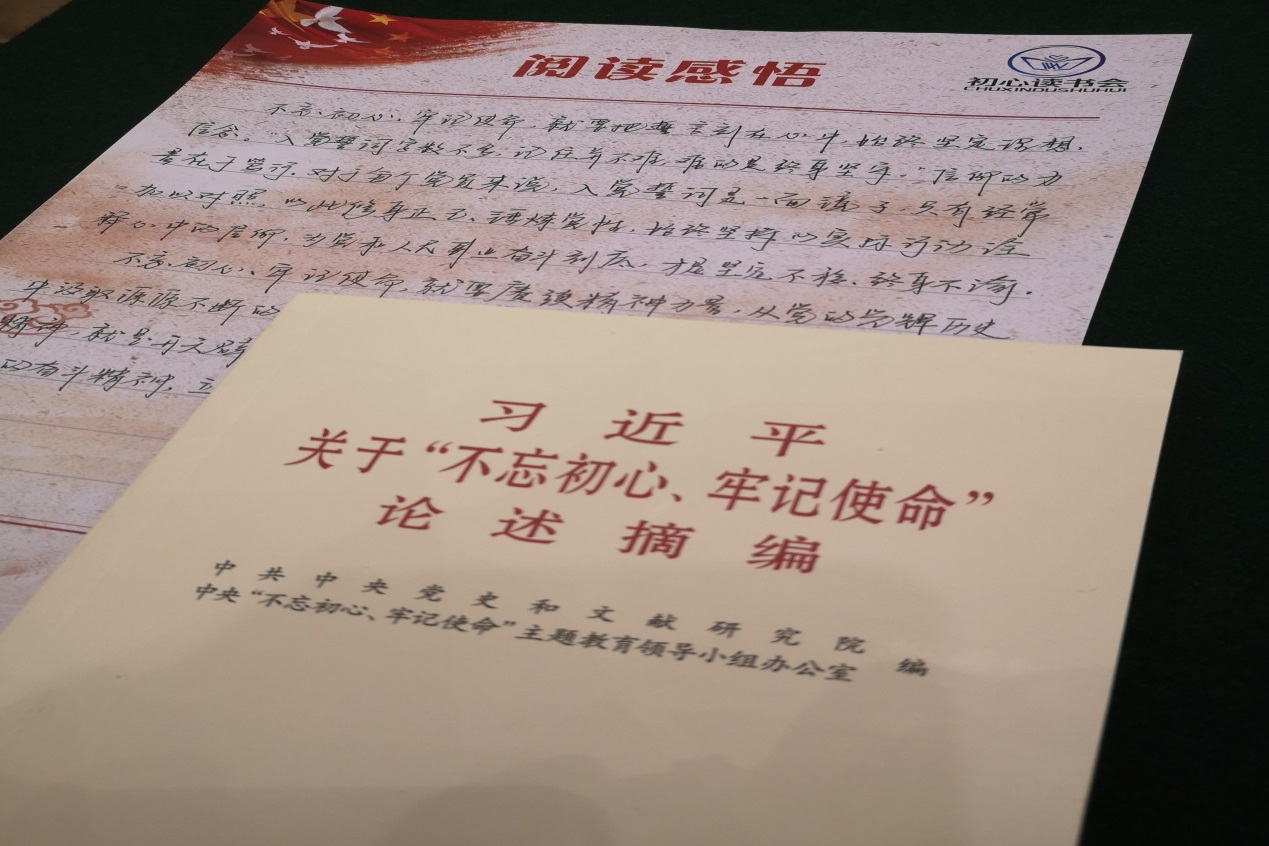 阅读感悟
初心读书会
CHUXINDUSHUHUI
不忘初心、牢记使命，就要把誓言刻在心中，始终坚定理想
信念。“入党誓词字数不多，记住并不难，难的是终身坚守。”信仰的力
量在于笃行。对于每个党员来说，入党誓词是一面镜子，只有经常
加以对照，以此修身正己、锤炼党性，始终坚持以实际行动诠
释心中的信仰，为党和人民事业奋斗到底，才是坚定不移、终身不渝。
不忘初心、牢记使命，就要赓续精神力量，从党的光辉历史
中汲取源源不断的
精神，就是开天辟
的奋斗精神，立
习近平
关于“不忘初心、牢记使命”
论述摘编
中共中央党史和文献研究院
中央“不忘初心、牢记使命”主题教育领导小组办公室 编